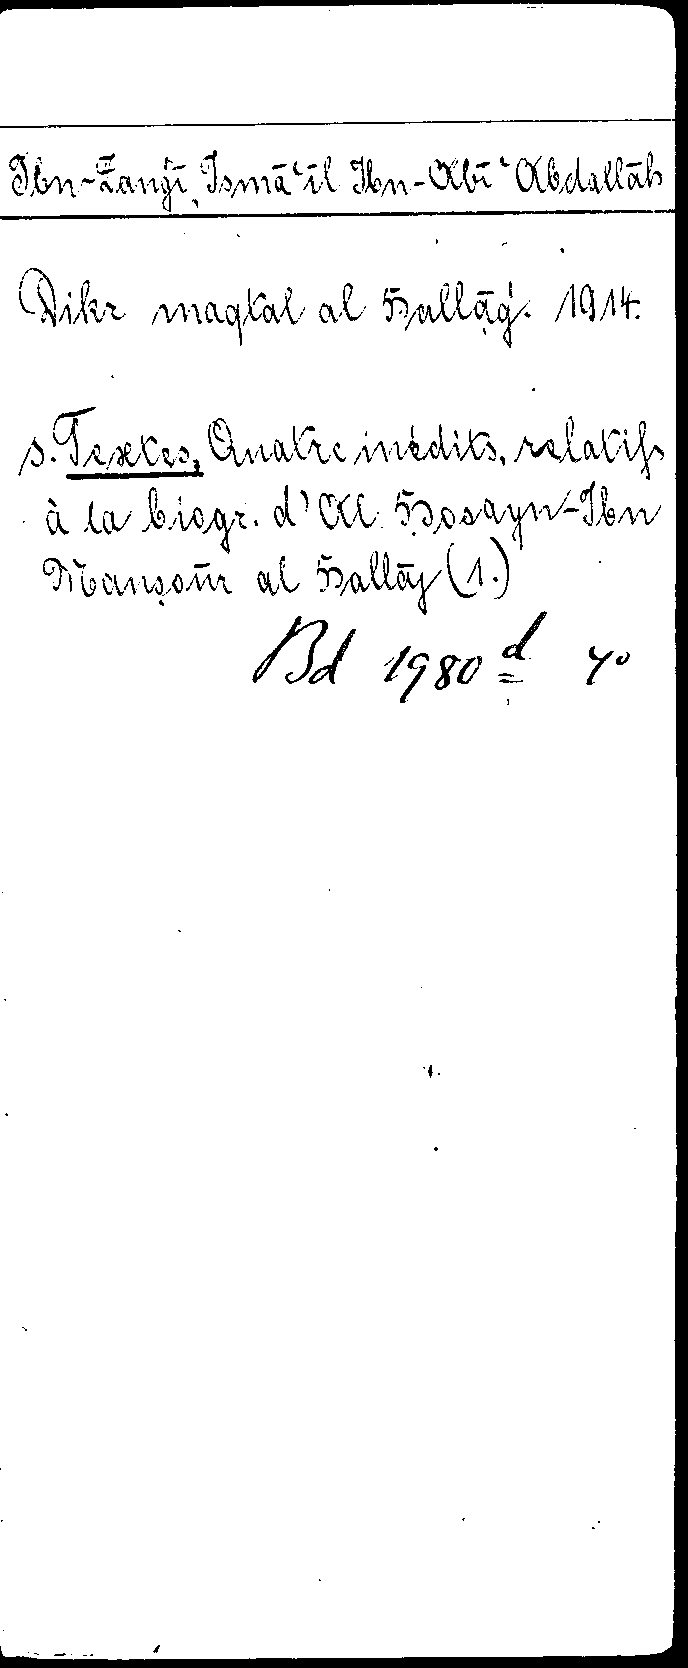 Ibn-Zanǧī, Ismāʿīl Ibn-Abī ʿAbdallāh
Dikr maqtal al Ḥallāǧ. 1914.
s. Textes, Quatre inédits, relatifs
à la biogr. d'Al Ḥosayn-Ibn
Manṣoūr al Ḥallāj (1.)
Bd 1980 d 4°